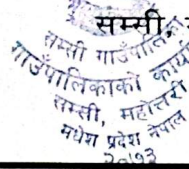 सम्सी,
सम्सी गाउँपालिका
गाउँपालिकाको कार्या
सम्सी, महोत्तरी
मधेश प्रदेश नेपाल
२०७३